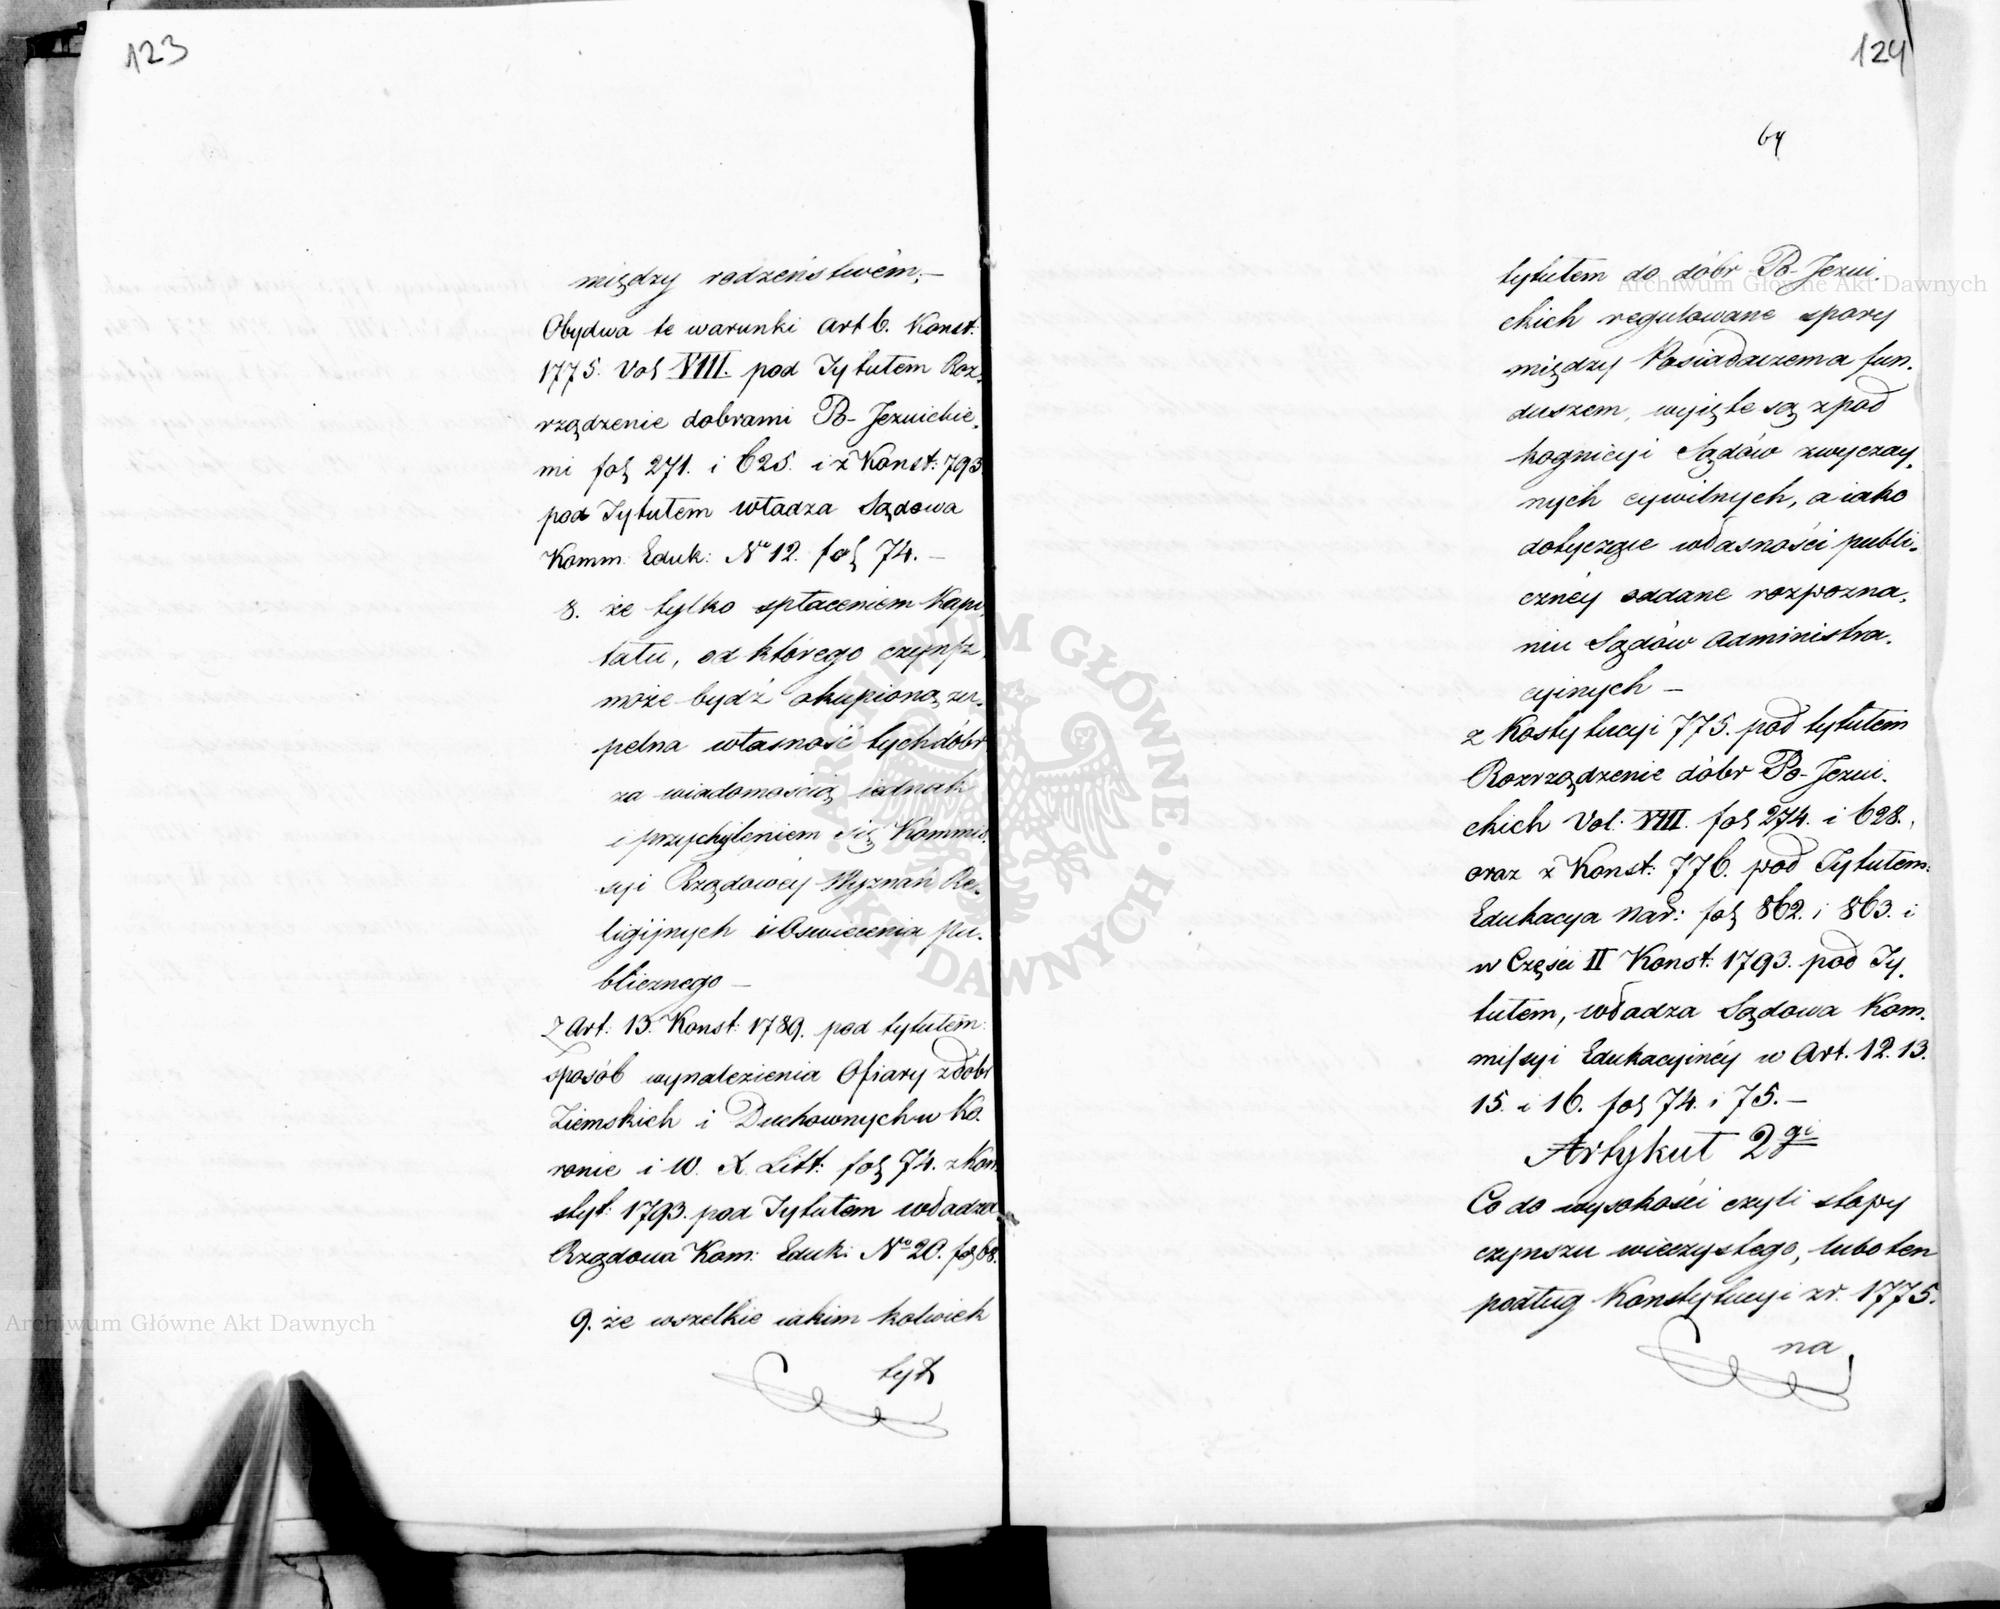 123
między rodzeństwem;—
Obydwa te warunki Art 6. Konst:
1775. Vol VIII. pod Tytułem Roz-
rządzenie dobrami Po-Jezuickie.
mi fol 271. i 625. i z Konst: 793
pod Tytułem władza Sądowa
Komm: Eduk: No 12. fol 74.—
8. że tylko spłaceniem Kapi.
tału, od którego czynsz,
może bydź okupioną zu.
pełna własność tych dóbr
za wiadomością iednak
i przychyleniem się Kommis.
syi Rządowéy Wyznań Re-
ligijnych i Oswiecenia pu.
blicznego—
Z Art: 13. Konst: 1789. pod tytułem:
sposób wynalezienia Ofiary z dóbr
Ziemskich i Duchownych w Ko.
ronie i W. X. Litt: fol 74. z Kon.
styt: 1793. pod Tytułem władza
Rządowa Kom: Eduk: No 20. fol 68.
9. że wszelkie iakim kolwiek
tyt
124
64
tytułem do dóbr Po-Jezui.
ckich regulowane spory
między Posiadaczem a fun.
duszem, wyięte są z pod
kognicyi Sądów zwyczay,
nych cywilnych, a iako
dotyczące własności publi.
cznéy oddane rozpozna,
niu Sądów administra.
cyinych—
z Kostytucyi 775. pod tytułem
Rozrządzenie dóbr Po-Jezui.
ckich Vol: VIII. fol 274. i 628.,
oraz z Konst: 776. pod Tytułem:
Edukacya Nar: fol 862. i 863. i
w Części II Konst: 1793. pod Ty.
tułem, władza Sądowa Kom.
missyi Edukacyinéy w Art. 12. 13.
15. i 16. fol 74. i 75.—
Artykuł 2gi
Co do wysokości czyli stopy
czynszu wieczystego, lubo ten
podług Konstytucyi z r. 1775.
na
Archiwum Główne Akt Dawnych
Archiwum Główne Akt Dawnych
ARCHIWUM GŁÓWNE AKT DAWNYCH